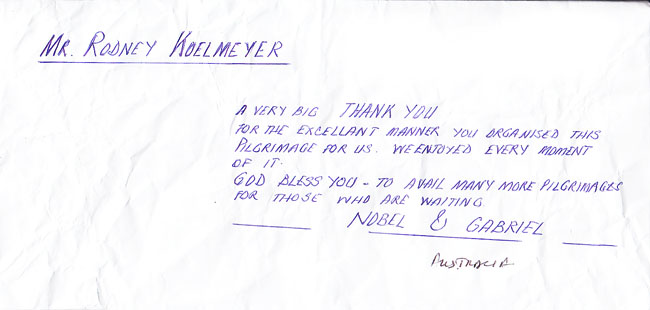 MR. RODNEY KOELMEYER
A VERY BIG THANK YOU
FOR THE EXCELLANT MANNER YOU ORGANISED THIS
PILGRIMAGE FOR US. WE ENJOYED EVERY MOMENT
OF IT.
GOD BLESS YOU - TO AVAIL MANY MORE PILGRIMAGES
FOR THOSE WHO ARE WAITING
NOBEL & GABRIEL
AUSTRALIA